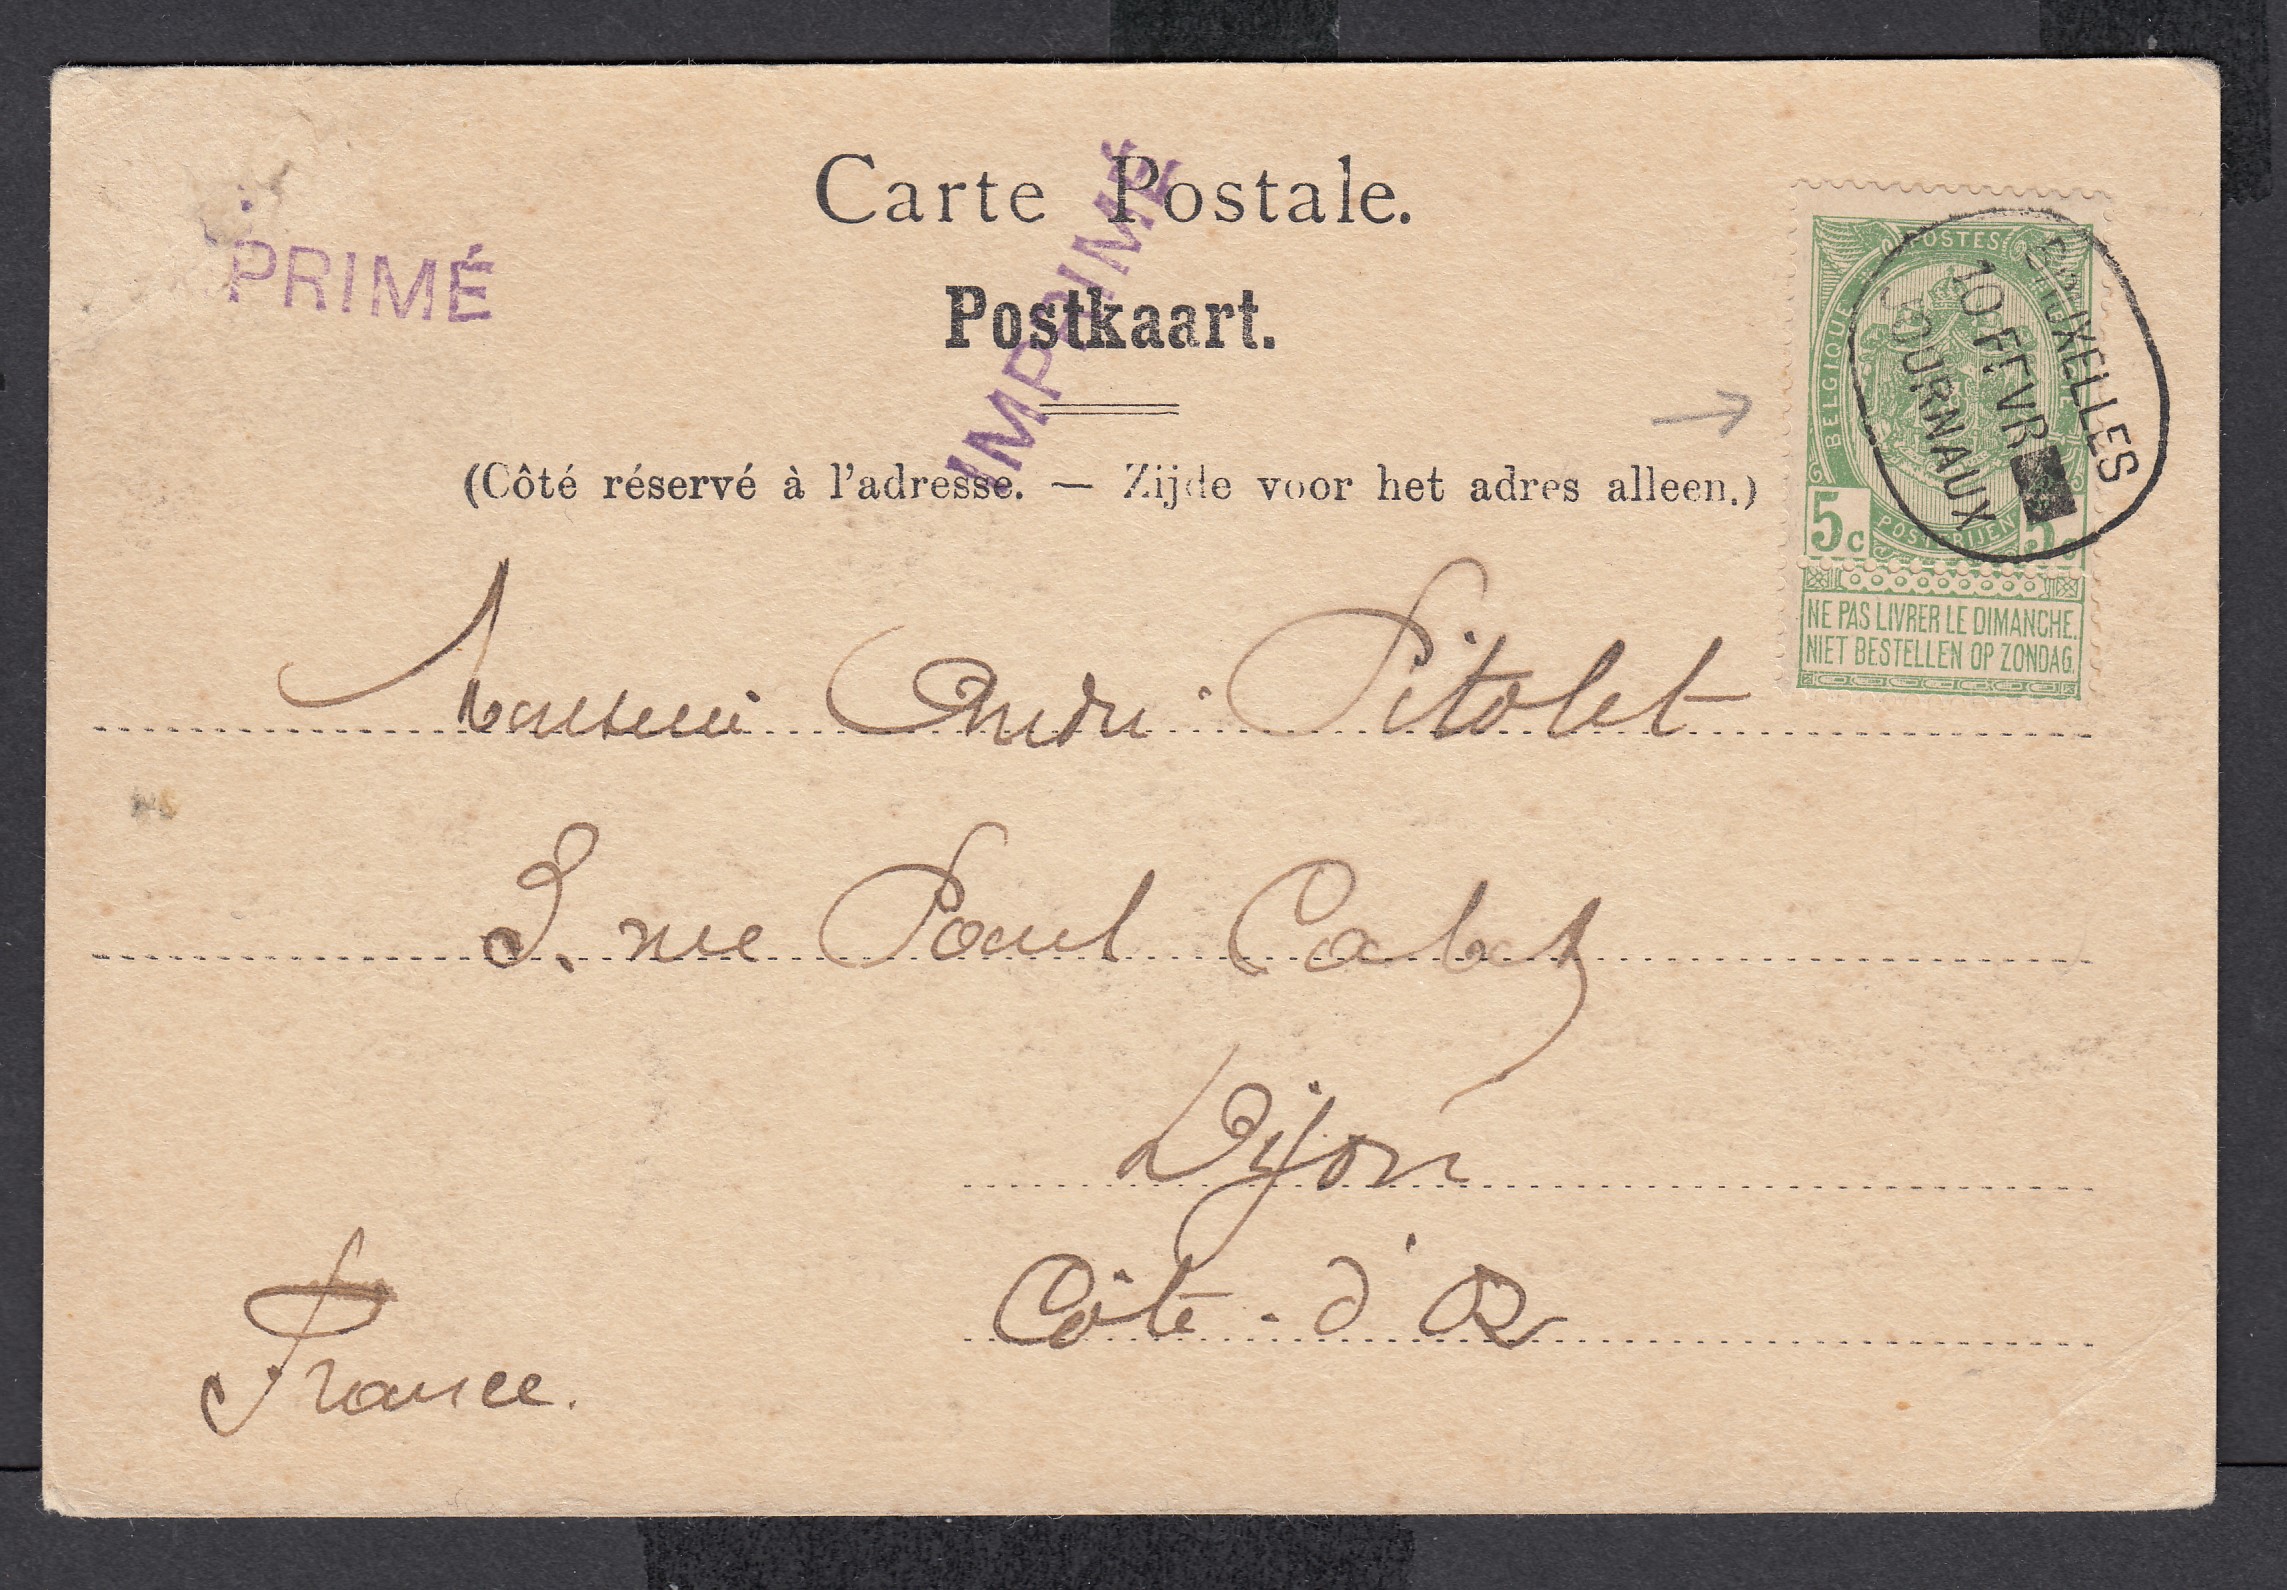 Carte Postale.
PRIMÉ
IMPRIMÉ
Postkaart.
(Côté réservé à l'adresse. — Zijde voor het adres alleen.)
POSTES
BELGIQUE
5c 5c
POSTERIJEN
NE PAS LIVRER LE DIMANCHE.
NIET BESTELLEN OP ZONDAG.
BRUXELLES
10 FEVR
JOURNAUX
Monsieur André Pitolet
3. rue Paul Cabet
Dijon
Côte-d'Or
France.